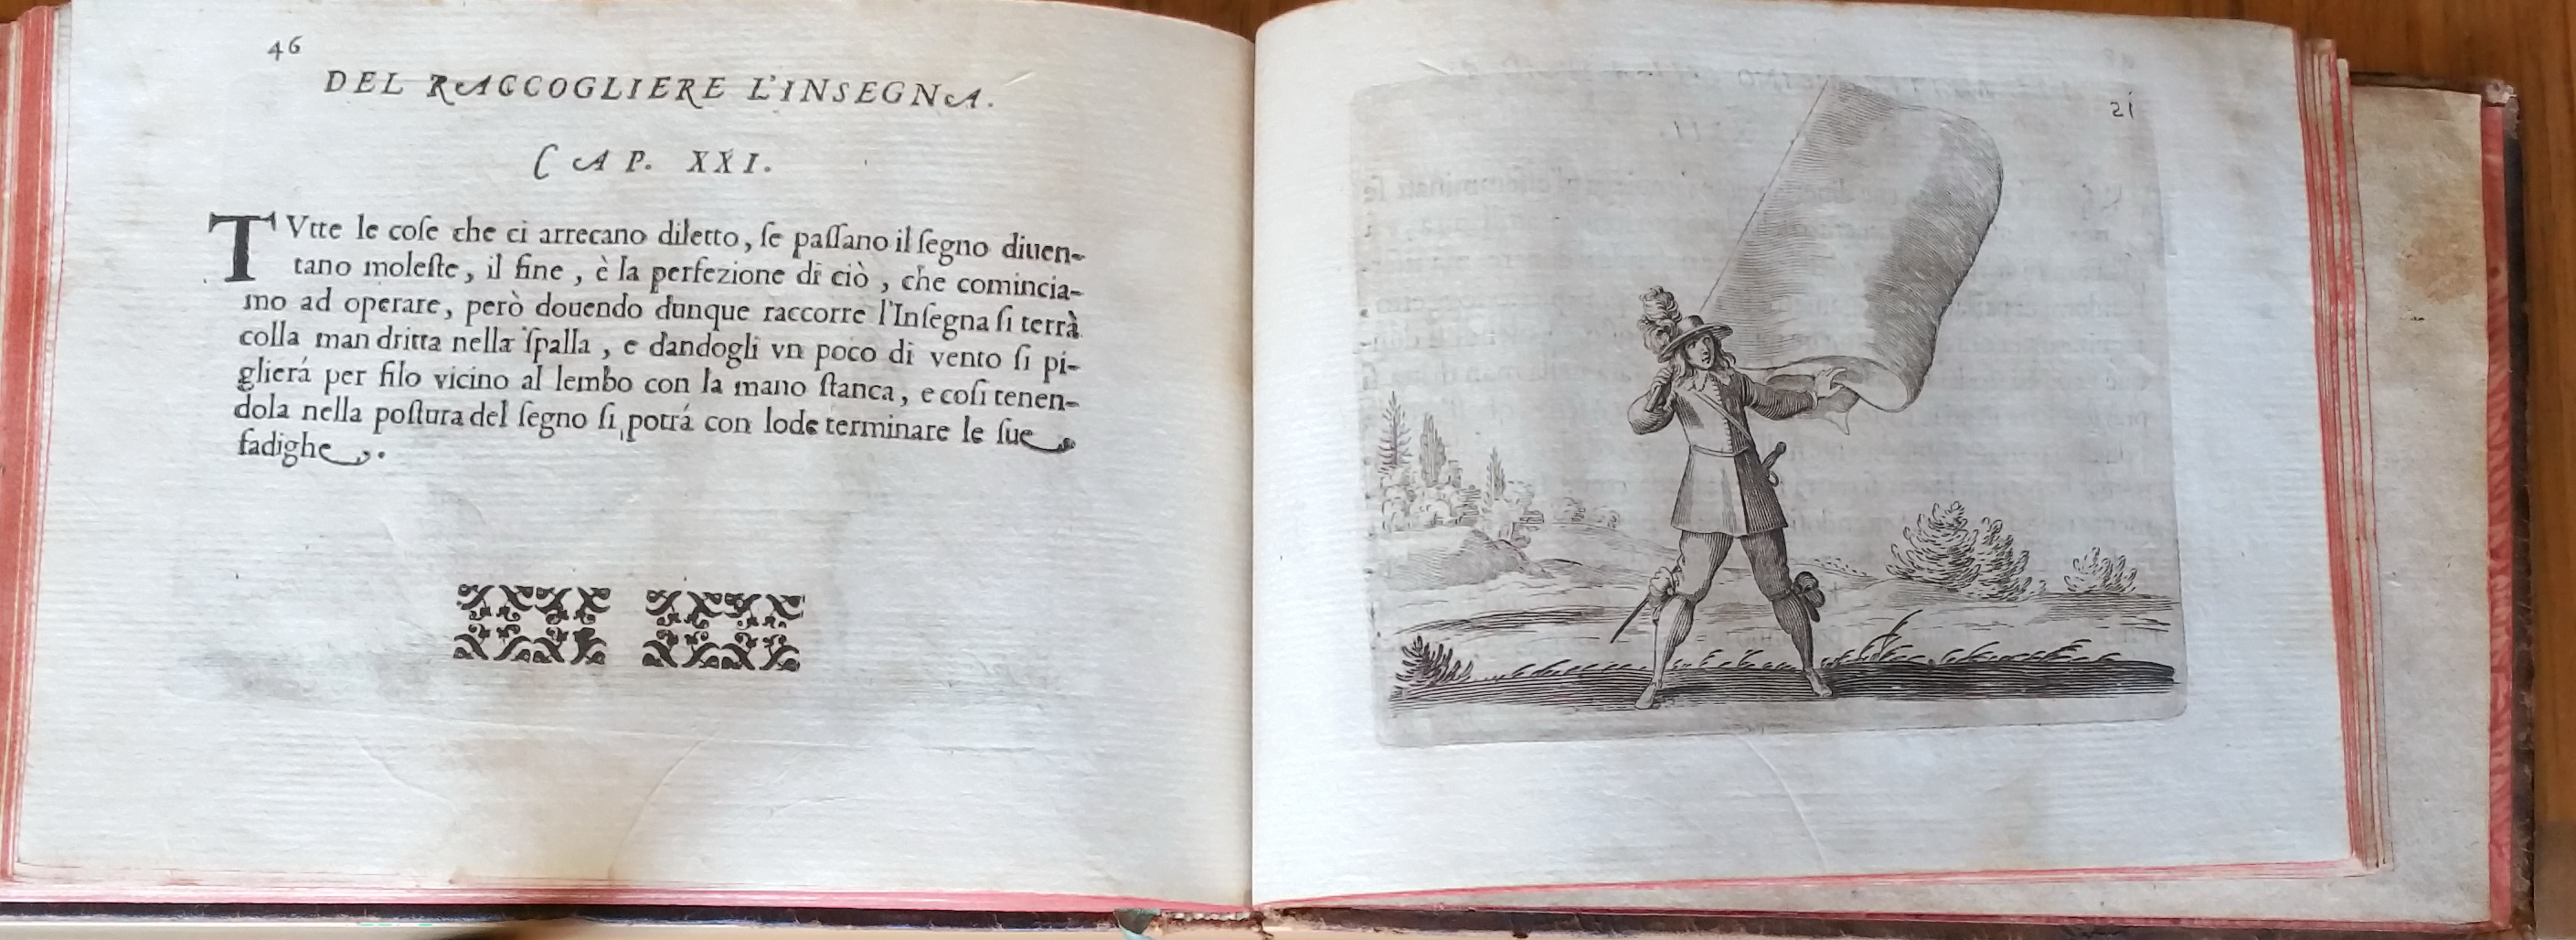 46
DEL RACCOGLIERE L'INSEGNA.
CAP. XXI.
TVtte le coſe che ci arrecano diletto, ſe paſſano il ſegno diuen-
tano moleſte, il fine, è la perfezione di ciò, che comincia-
mo ad operare, però douendo dunque raccorre l'Inſegna ſi terrà
colla man dritta nella ſpalla, e dandogli vn poco di vento ſi pi-
glierá per filo vicino al lembo con la mano ſtanca, e coſi tenen-
dola nella poſtura del ſegno ſi potrá con lode terminare le ſue
fadighe.
21